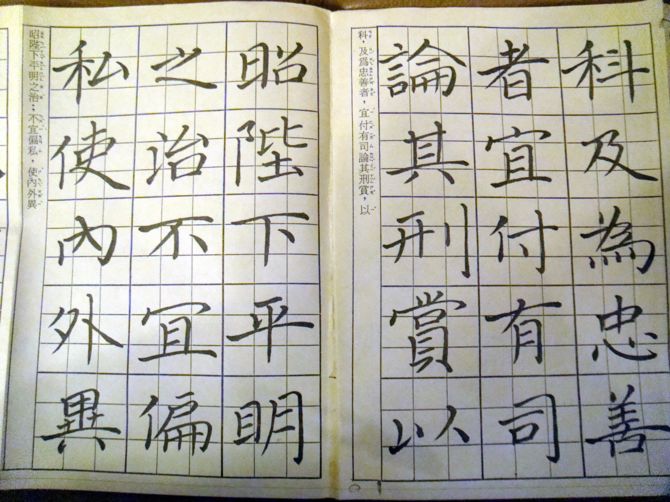 科及為忠善
者宜付有司
論其刑賞以
科，及為忠善者，宜付有司論其刑賞，以
昭陛下平明
之治不宜偏
私使內外異
昭陛下平明之治；不宜偏私，使內外異